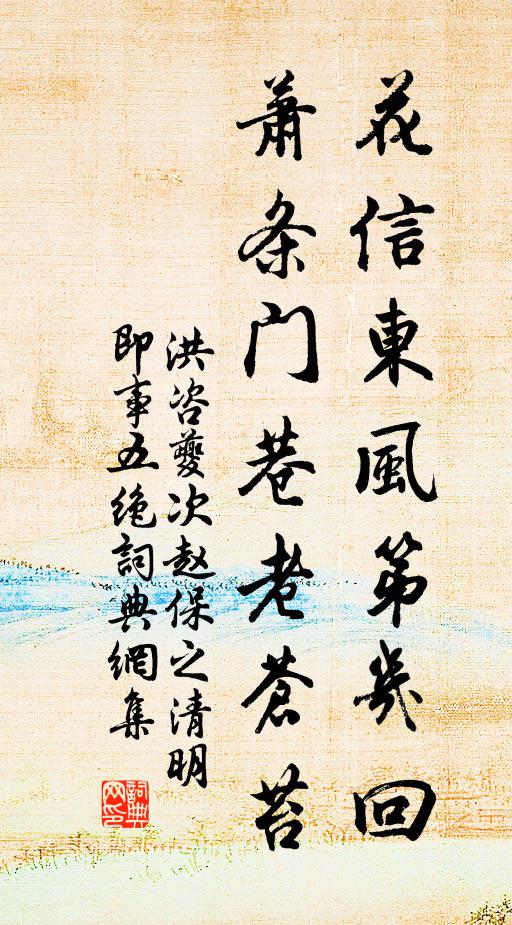 花信東風第幾回
蕭条門巷老蒼苔
洪咨夔次赵保之清明
即事五绝詞典網集
詞典
网印